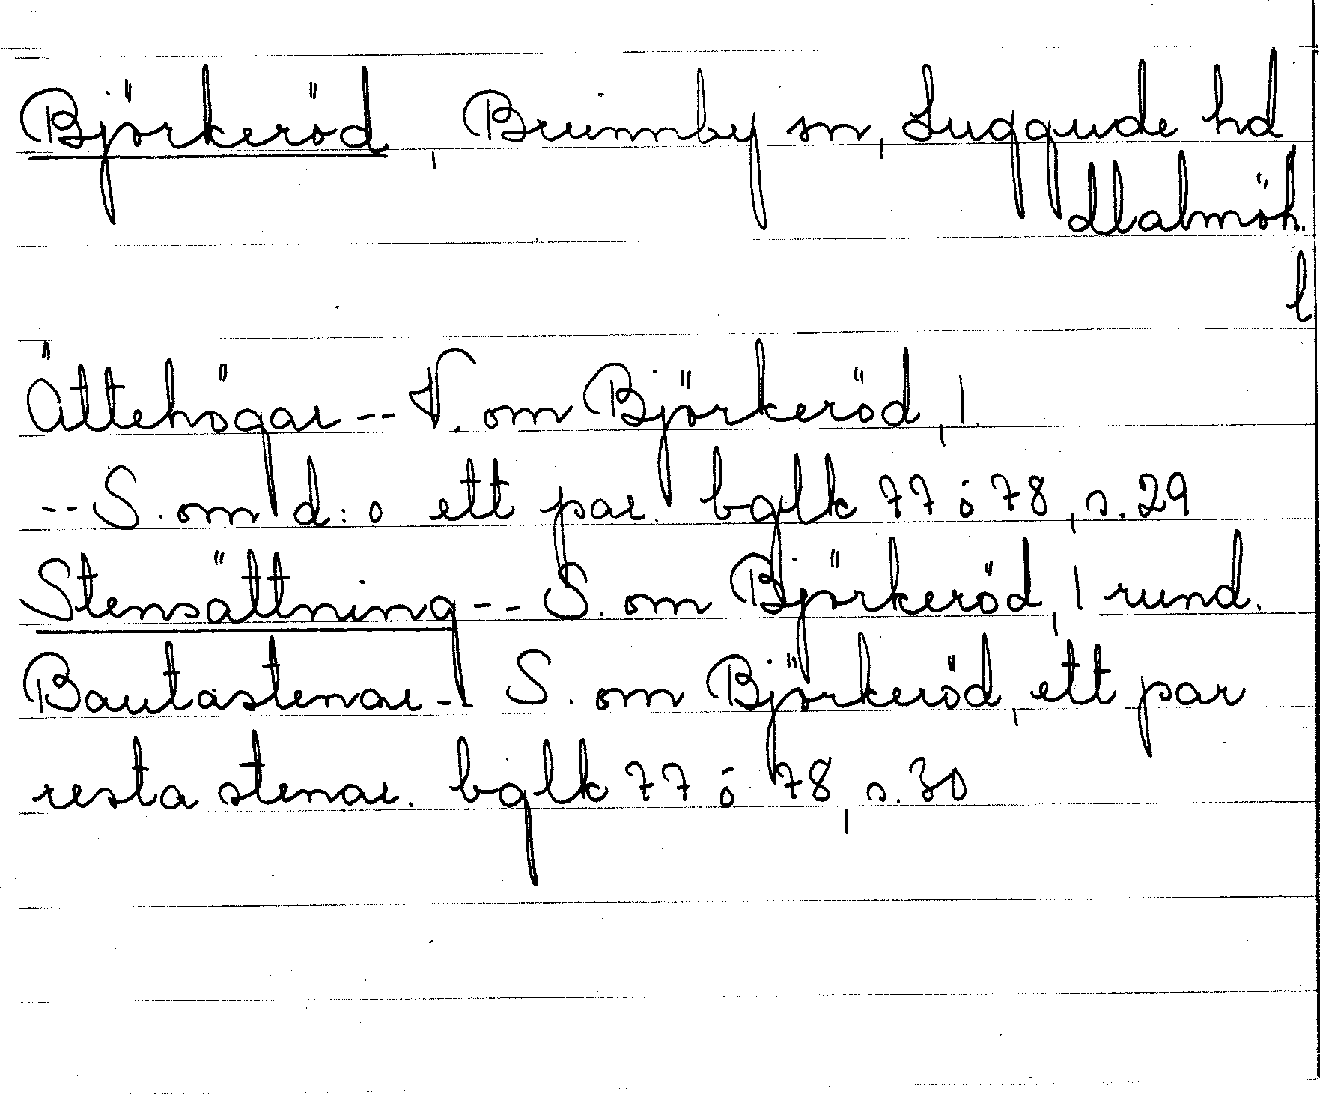 Björkeröd, Brunnby sn, Luggude hd
Malmöh.
l
Ättehögar -- V. om Björkeröd, 1.
-- S. om d:o ett par. bglk 77 ö 78, s. 29
Stensättning -- S. om Björkeröd, 1 rund.
Bautastenar - S. om Björkeröd, ett par
resta stenar. bglk 77 ö 78, s. 30